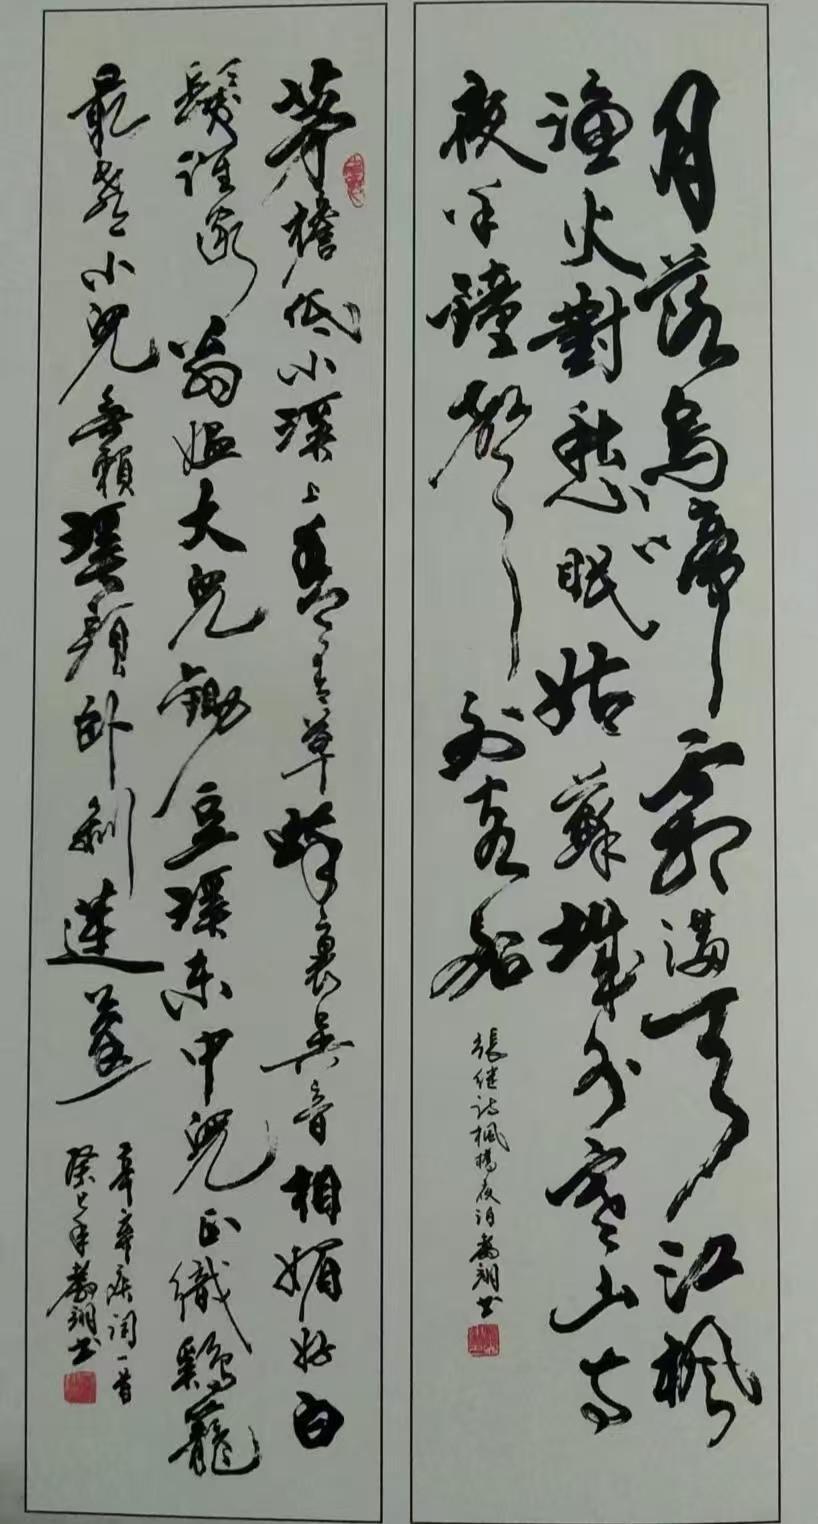 月落烏啼霜滿天江楓
漁火對愁眠姑蘇城外寒山寺
夜半鐘聲到客船
張继诗楓橋夜泊 翔书
茅檐低小溪上青青草醉裏吳音相媚好白
髮誰家翁媪大兒鋤豆溪東中兒正織鷄籠
最喜小兒無賴溪頭卧剝蓮蓬
辛弃疾词一首
癸巳年 翔书